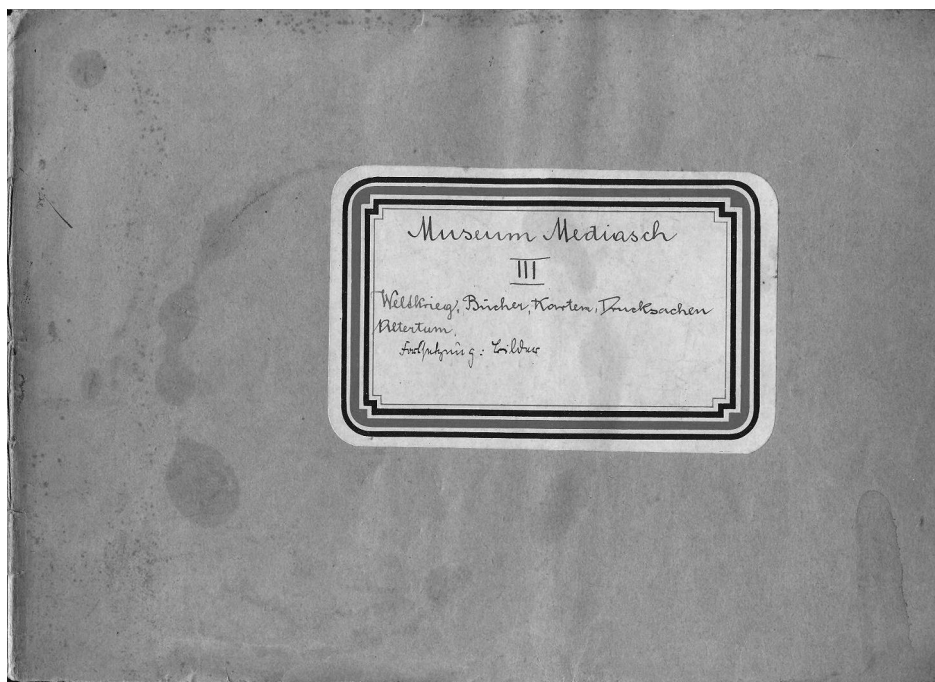 Museum Mediasch
III
Weltkrieg, Bücher, Karten, Drucksachen
Altertum.
Fortsetzung: Bilder